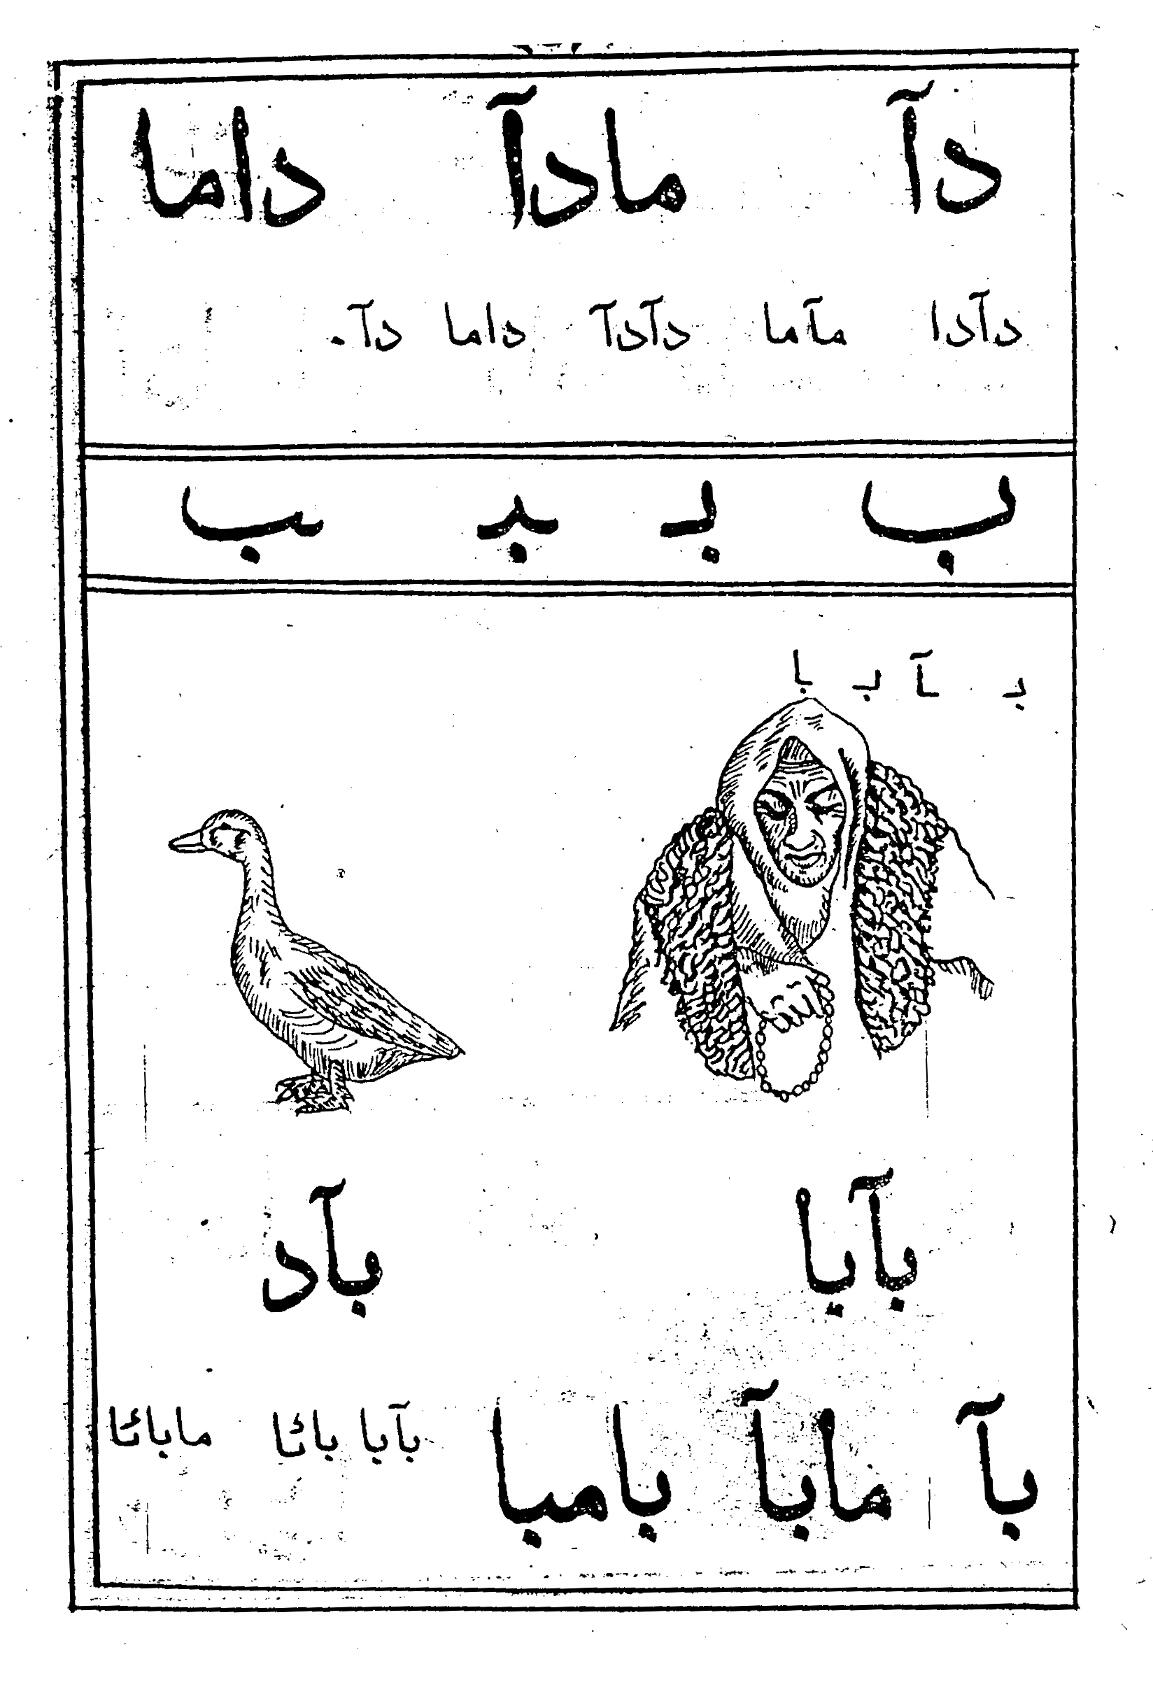 دآ مادآ داما
دآدا مآما دآدآ داما دآ.
ب بـ ـبـ ـب
بـ ـآ بـ با
بآبا بآد
بآ مابآ بامبا بآبا بائا مابائا